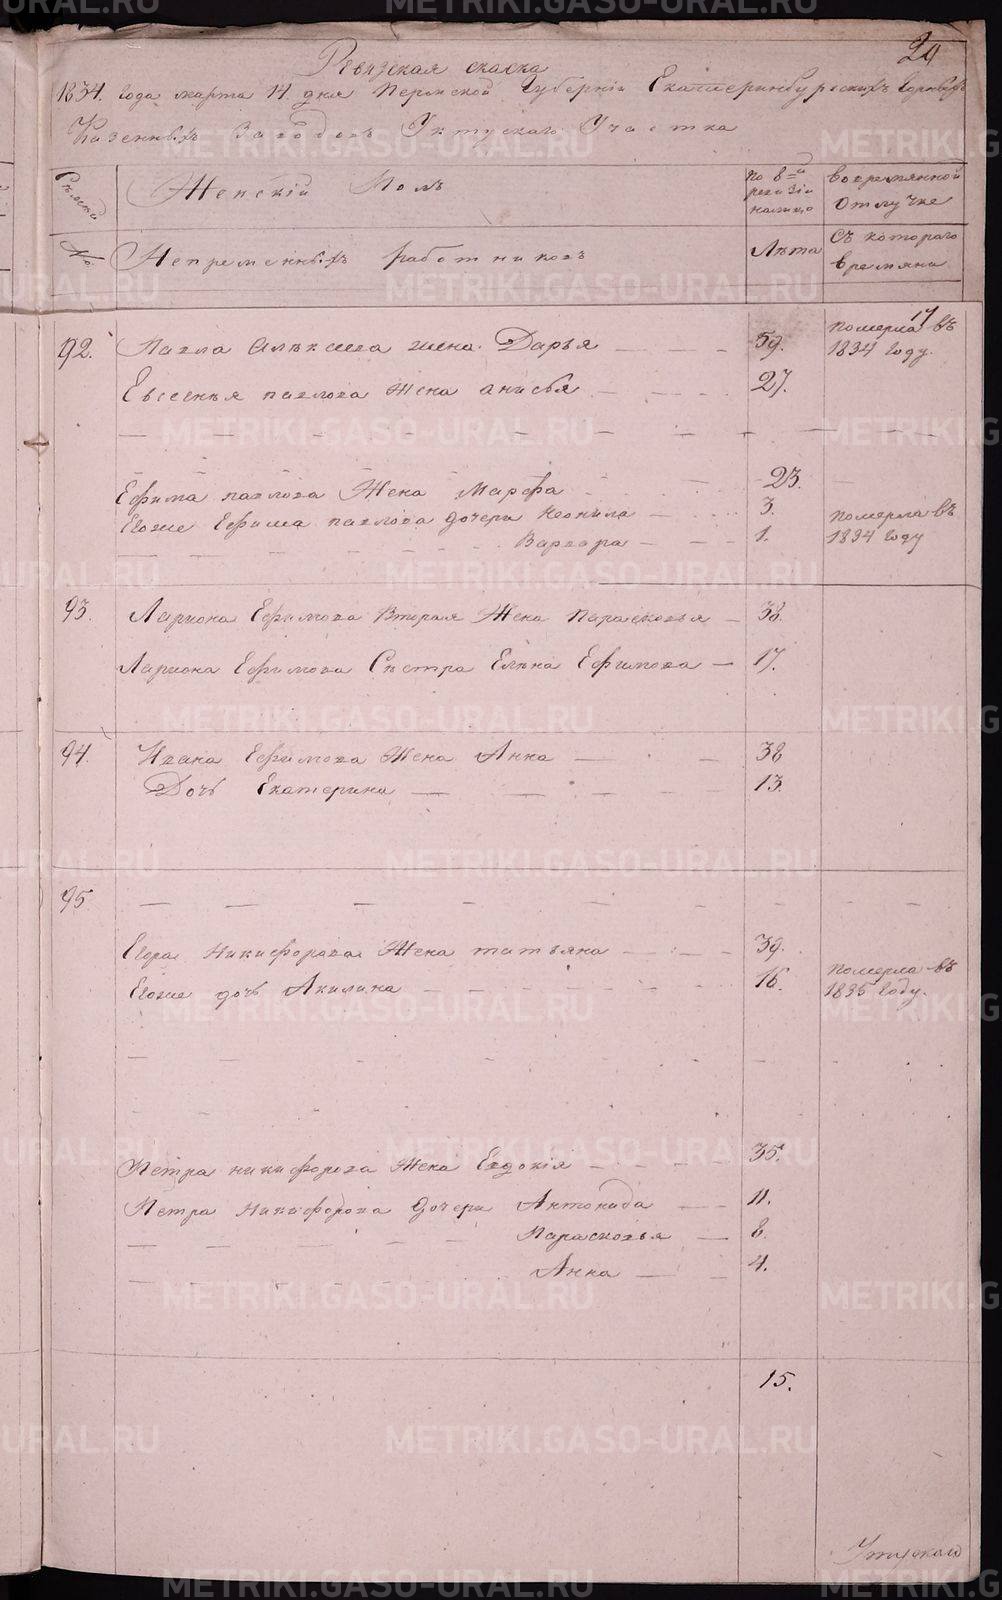 29
Ревизская скаска
1834. Года марта 14 дня Пермской Губернiи Екатеринбургскихъ Горныхъ
Казенныхъ Заводовъ Уктускаго Участка
Семьи
Женскiй Полъ
по 8й ревизiи налицо
Во временной Отлучке
№
Непременныхъ работниковъ
Лѣта
Съ котораго времяни
92. Павла Алѣксеева жена Дарья 59. померла въ
1834 Году.
Евсенья павлова Жена анисья 27.
Ефима павлова Жена Марфа 23.
Егоже Ефима павлова дочери Неонила 3. померла въ
Варвара 1. 1834 Году
93. Лариона Ефимова Вторая Жена Парасковья 38.
Лариона Ефимова Сѣстра Елѣна Ефимова 17.
94. Ивана Ефимова Жена Анна 38
Дочь Екатерина 13.
95.
Егора Никифорова Жена татьяна 39.
Егоже дочь Акилина 16. померла въ
1835 Году.
Петра никифорова Жена Евдокiя 35.
Петра Никифорова дочери Антонида 11.
Парасковья 8.
Анна 4.
15.
METRIKI.GASO-URAL.RU